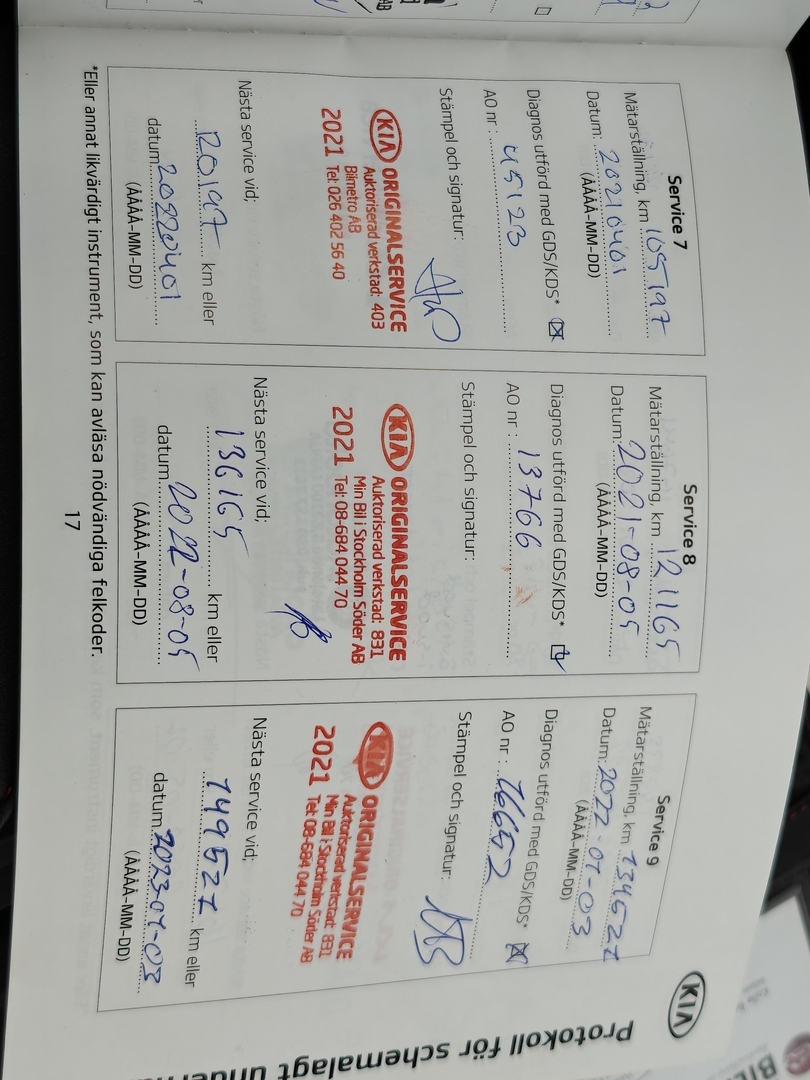 KIA
Protokoll för schemalagt underh
Service 7
Mätarställning, km 105197
Datum: 20210401
(ÅÅÅÅ-MM-DD)
Diagnos utförd med GDS/KDS*
AO nr: 45123
Stämpel och signatur:
KIA ORIGINALSERVICE
Auktoriserad verkstad: 403
Bilmetro AB
2021 Tel: 026 402 56 40
Nästa service vid;
120197 km eller
datum 20220401
(ÅÅÅÅ-MM-DD)
Service 8
Mätarställning, km 121165
Datum: 2021-08-05
(ÅÅÅÅ-MM-DD)
Diagnos utförd med GDS/KDS*
AO nr: 13766
Stämpel och signatur:
KIA ORIGINALSERVICE
Auktoriserad verkstad: 831
Min Bil i Stockholm Söder AB
2021 Tel: 08-684 044 70
Nästa service vid;
136165 km eller
datum 2022-08-05
(ÅÅÅÅ-MM-DD)
Service 9
Mätarställning, km 134527
Datum: 2022-01-03
(ÅÅÅÅ-MM-DD)
Diagnos utförd med GDS/KDS*
AO nr: 16652
Stämpel och signatur:
KIA ORIGINALSERVICE
Auktoriserad verkstad: 831
Min Bil i Stockholm Söder AB
2021 Tel: 08-684 044 70
Nästa service vid;
149527 km eller
datum 2023-01-03
(ÅÅÅÅ-MM-DD)
*Eller annat likvärdigt instrument, som kan avläsa nödvändiga felkoder.
17